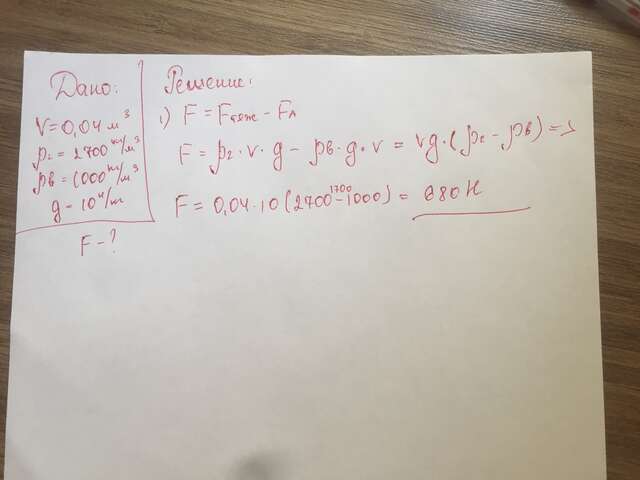 Дано:
V = 0,04 м³
ρг = 2700 кг/м³
ρв = 1000 кг/м³
g = 10 н/кг
F - ?
Решение:
1) F = Fтяж - Fл
F = ρг · v · g - ρв · g · v = vg · (ρг - ρв) = >
1700
F = 0,04 · 10 (2700 - 1000) = 680 Н